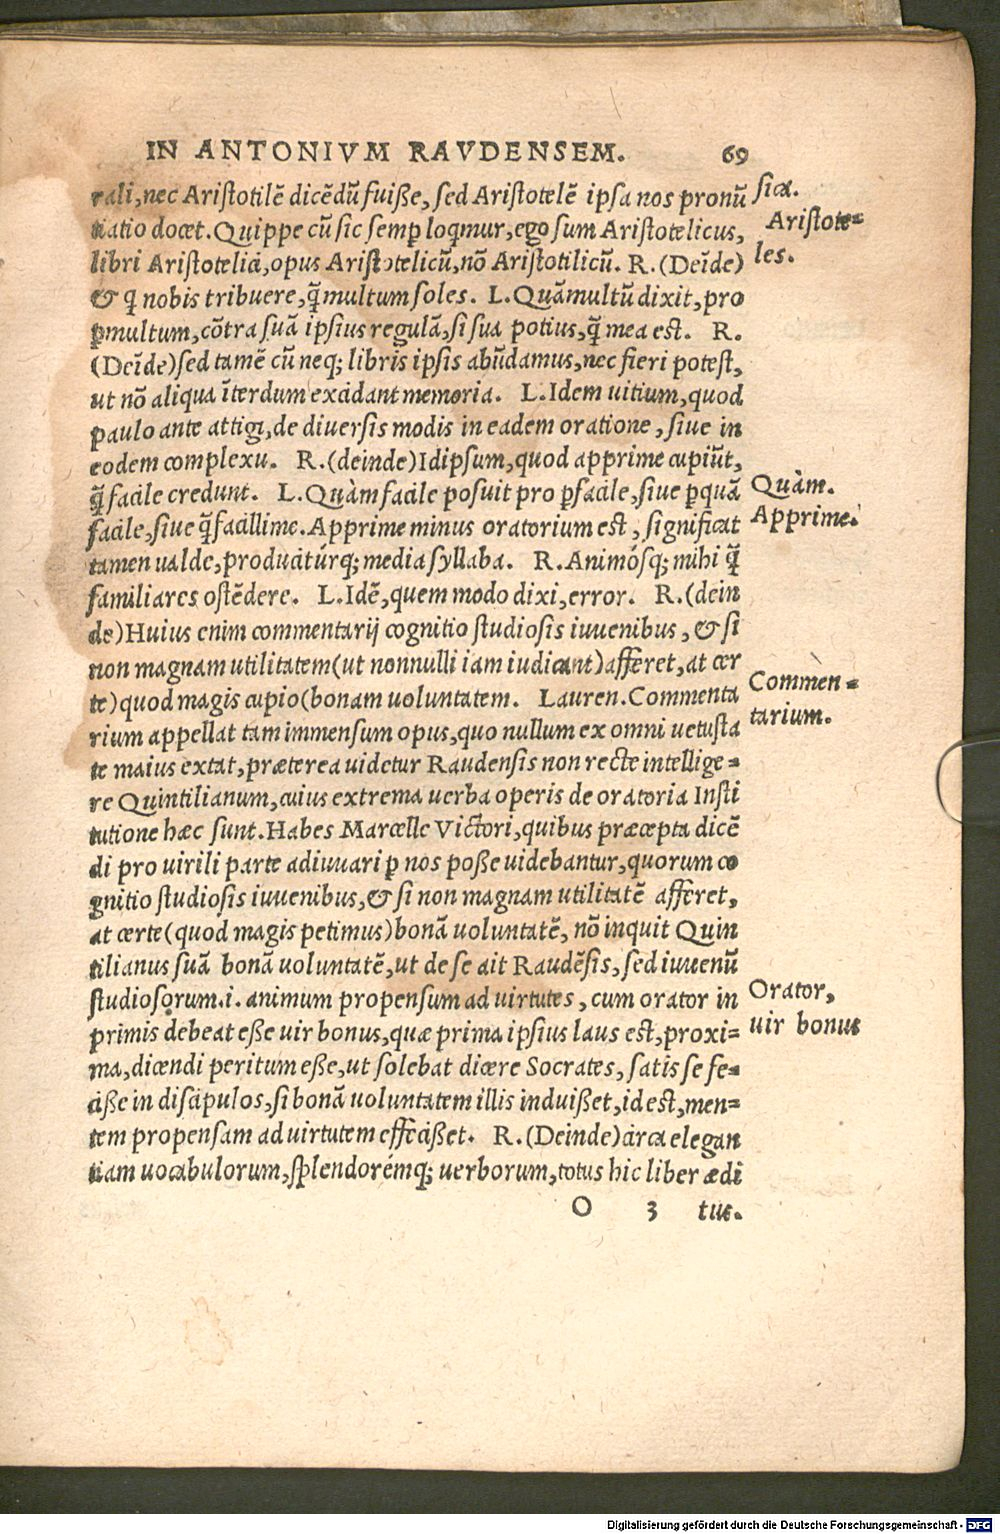 IN ANTONIVM RAVDENSEM. 69
rali, nec Aristotilē dicēdū fuiße, sed Aristotelē ipsa nos pronū
tiatio docet. Quippe cū sic semꝑ loqmur, ego sum Aristotelicus,
libri Aristotelici, opus Aristotelicū, nō Aristotilicū. R. (Deīde)
& q nobis tribuere, q̃ multum soles. L. Quāmultū dixit, pro
ꝑmultum, cōtra suā ipsius regulā, si sua potius, q̃ mea est. R.
(Deīde) sed tamē cū neq; libris ipsis abūdamus, nec fieri potest,
ut nō aliqua īterdum excidant memoria. L. Idem uitium, quod
paulo ante attigi, de diuersis modis in eadem oratione, siue in
eodem complexu. R. (deinde) Idipsum, quod apprime cupiūt,
q̃ facile credunt. L. Quàm facile posuit pro ꝑfacile, siue ꝑquā
facile, siue q̃ facillime. Apprime minus oratorium est, significat
tamen ualde, produciturq́; media syllaba. R. Animósq; mihi q̃
familiares ostēdere. L. Idē, quem modo dixi, error. R. (dein
de) Huius enim commentarij cognitio studiosis iuuenibus, & si
non magnam utilitatem (ut nonnulli iam iudicant) afferet, at cer
te) quod magis cupio (bonam uoluntatem. Lauren. Commenta
rium appellat tam immensum opus, quo nullum ex omni uetusta
te maius extat, præterea uidetur Raudensis non recte intellige=
re Quintilianum, cuius extrema uerba operis de oratoria Insti
tutione hæc sunt. Habes Marcelle Victori, quibus præcepta dicē
di pro uirili parte adiuuari ꝑ nos poße uidebantur, quorum co
gnitio studiosis iuuenibus, & si non magnam utilitatē afferet,
at certe (quod magis petimus) bonā uoluntatē, nō inquit Quin
tilianus suā bonā uoluntatē, ut de se ait Raudēsis, sed iuuenū
studiosorum .i. animum propensum ad uirtutes, cum orator in
primis debeat eße uir bonus, quæ prima ipsius laus est, proxi=
ma, dicendi peritum eße, ut solebat dicere Socrates, satis se fe=
ciße in discipulos, si bonā uoluntatem illis induißet, id est, men=
tem propensam ad uirtutem effecißet. R. (Deinde) circa elegan
tiam uocabulorum, splendorémq; uerborum, totus hic liber ædi
O 3 tus.
sica.
Aristote=
les.
Quàm.
Apprime.
Commen=
tarium.
Orator,
uir bonus
Digitalisierung gefördert durch die Deutsche Forschungsgemeinschaft - DFG